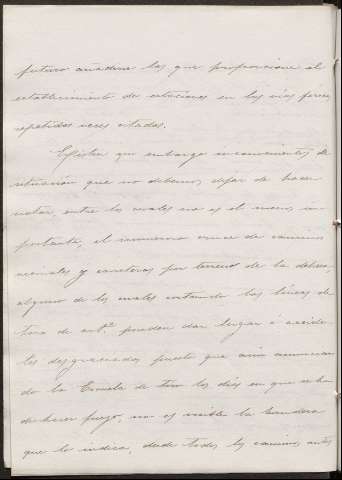 futuro añadirse las que proporcione el
establecimiento de estaciones en las vias ferreas
repetidas veces citadas.
Existen sin embargo inconvenientes de
situación que no debemos dejar de hacer
notar, entre los cuales no es el menos im
portante, el inmenso cruce de caminos
vecinales y carreteras por terrenos de la dehesa,
alguno de los cuales cortando las líneas de
tiro de art.ª pueden dar lugar á acciden
tes desgraciados puesto que aún anuncian
do la Escuela de tiro los días en que se ha
de hacer fuego, no es visible la bandera
que lo indica, desde todos los caminos antes